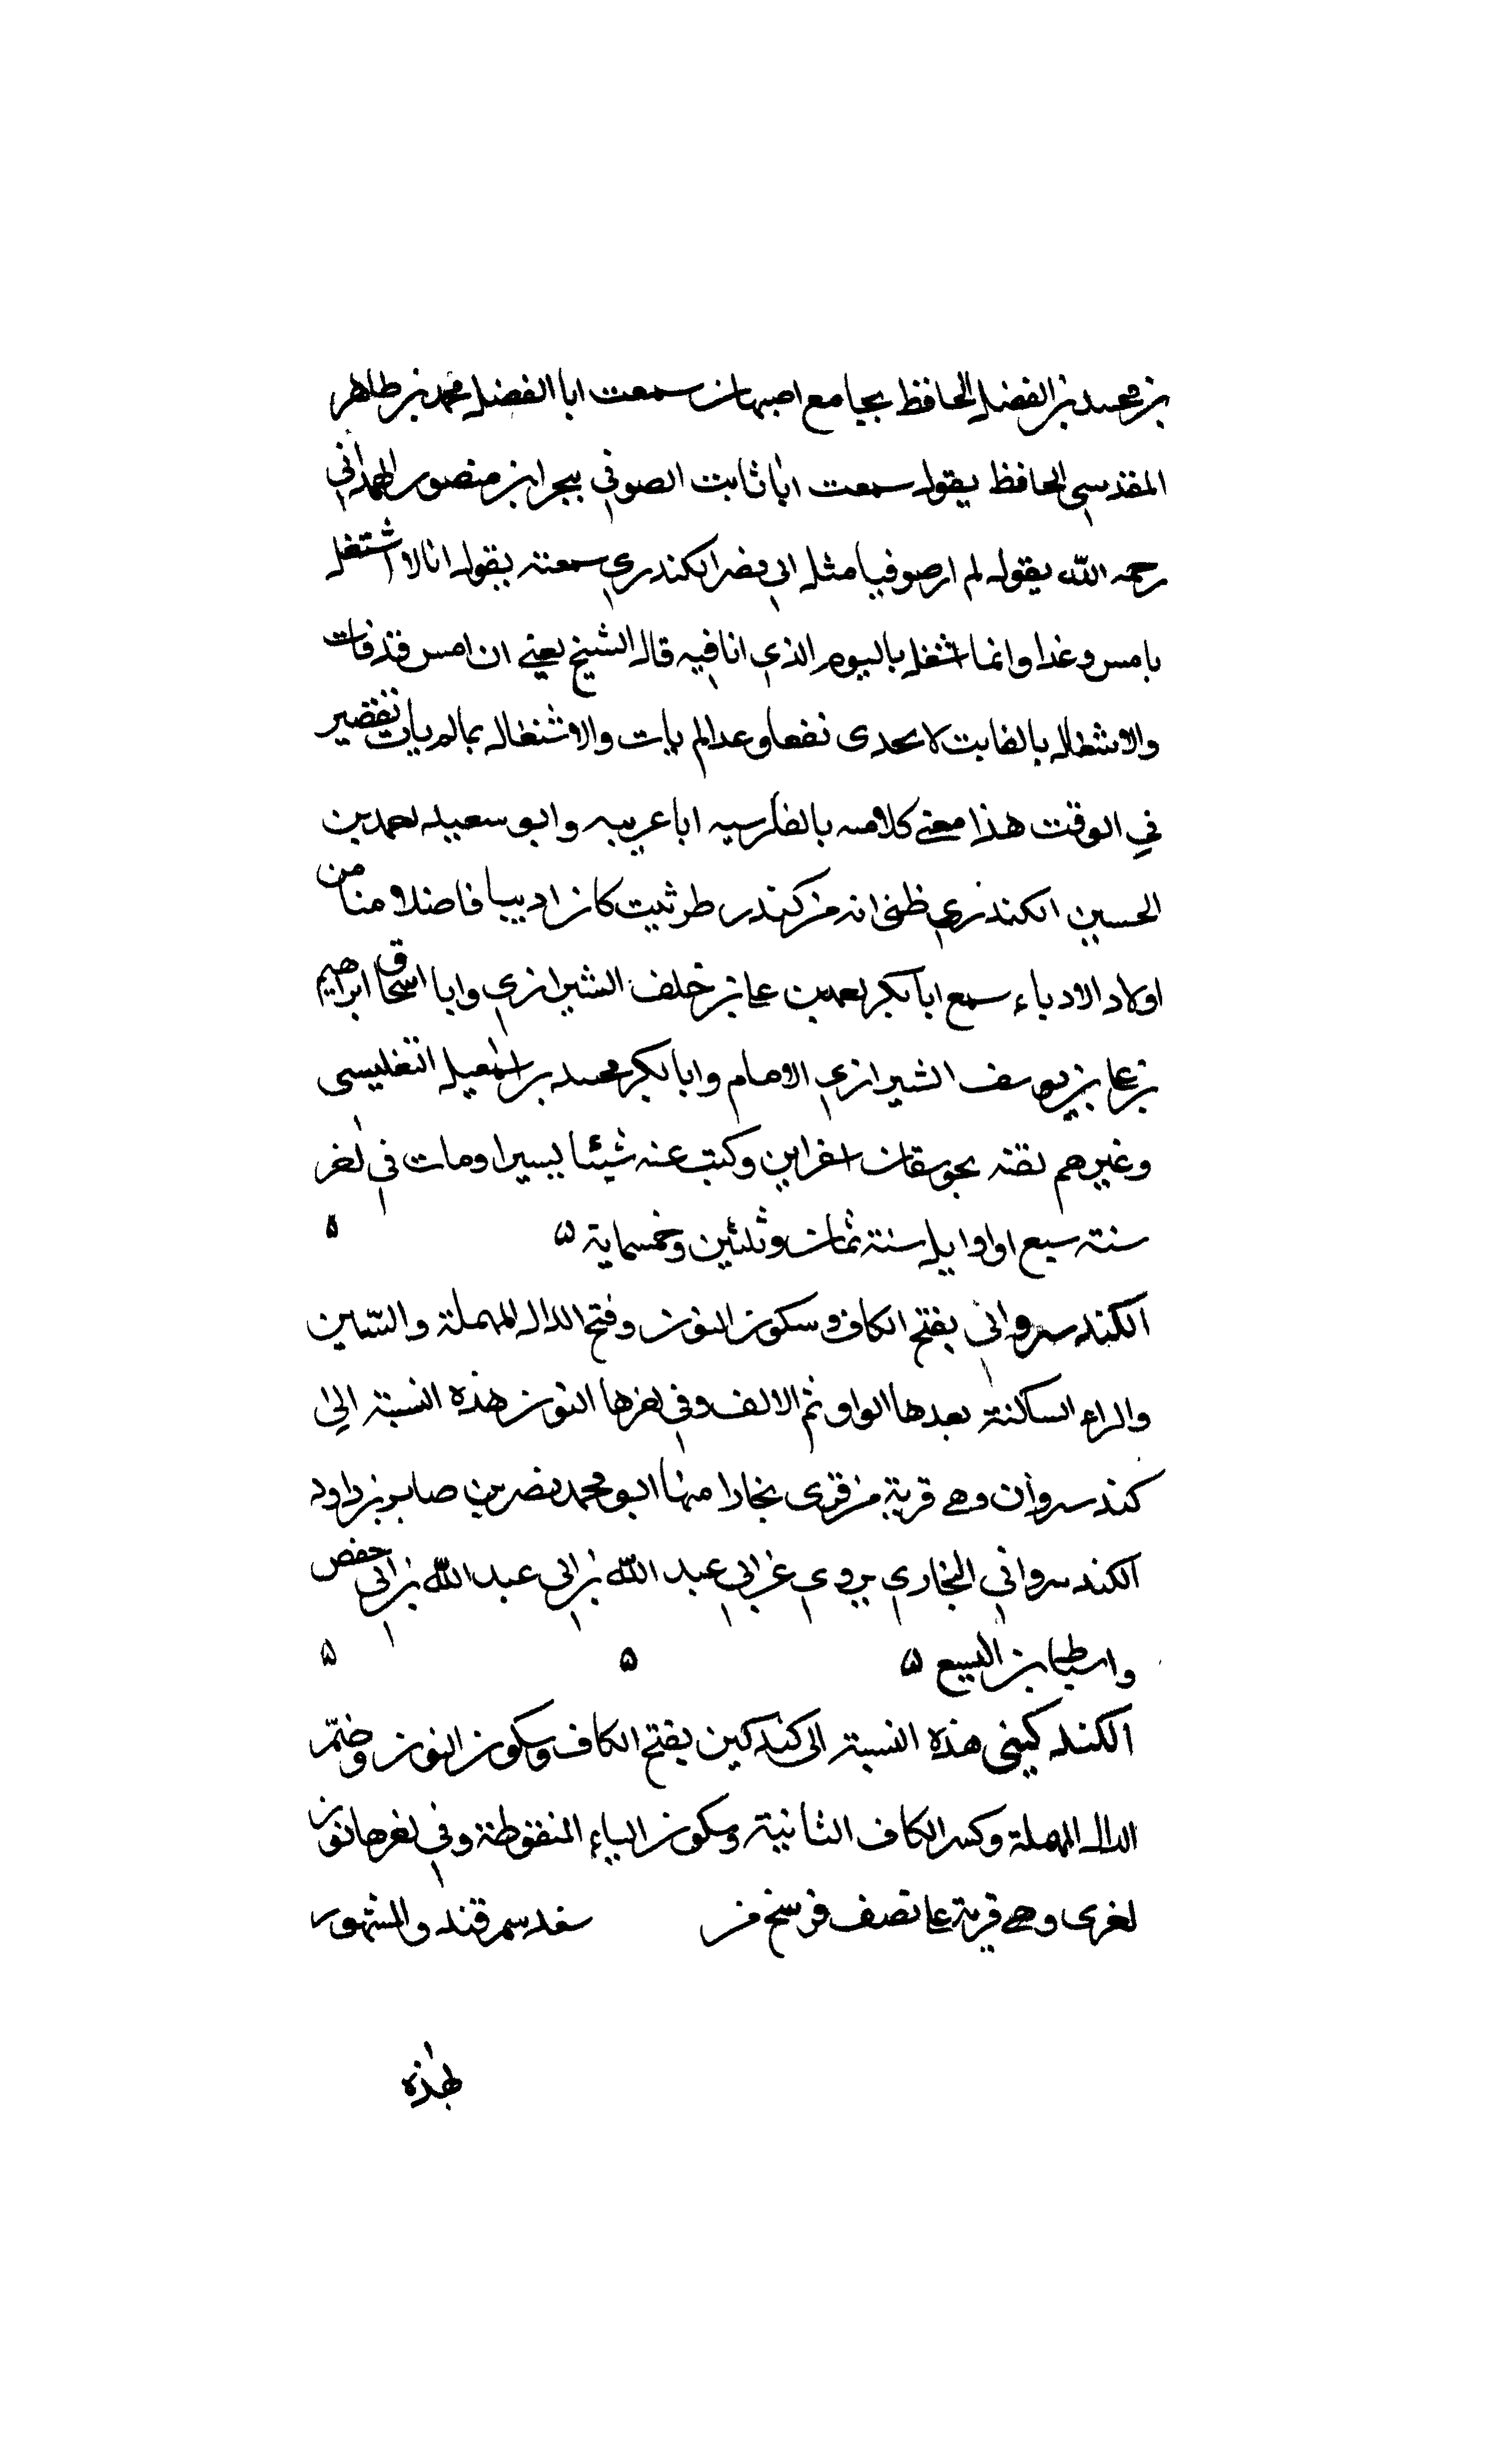 بن محمد بن الفضل الحافظ بجامع اصبهان سمعت ابا الفضل محمد بن طاهر
المقدسي الحافظ يقول سمعت ابا ثابت الصوفي بنجرابن منصور الهمداني
رحمه الله يقول لم ار صوفيا مثل ابي نصر الكندري سمعته يقول انا لا اشتغل
بامس وغدا وانما اشغل باليوم الذي انا فيه قال الشيخ يعني ان امس قد فات
والاشتغال بالفايت لا يجدى نفعا وغدا لم يات والاشتغال بما لم يات تقصير
في الوقت هذا معنى كلامه بالفارسية وابو سعيد احمد بن
الحسين الكندري ظني انه من كندر طرثيث كان اديبا فاضلا منا من
اولاد الادباء سمع ابا بكر احمد بن علي بن خلف الشيرازي وابا اسحاق ابراهيم
بن علي بن يوسف الشيرازي الامام وابا بكر محمد بن اسمعيل التفليسي
وغيرهم لقيته بجوسقان اسفراين وكتب عنه شيئا يسيرا ومات في اخر
سنة سبع او اوايل سنة ثمان وثلثين وخمسماية ٥ ٥
الكندسرواني بفتح الكاف وسكون النون وفتح الدال المهملة والسين
والراء الساكنة بعدها الواو ثم الالف وفي اخرها النون هذه النسبة الى
كندسروان وهي قرية من قرى بخارا منها ابو محمد نصر بن صابر بن داود
الكندسرواني البخاري يروي عن ابي عبد الله بن ابي عبد الله بن ابي حفص
واسباط بن اليسع ٥ ٥ ٥
الكندكيني هذه النسبة الى كندكين بفتح الكاف وسكون النون وضم
الدال المهملة وكسر الكاف الثانية وسكون الياء المنقوطة وفي اخرها نون
اخرى وهي قرية على نصف فرسخ من سغد سمرقند والمشهور
بهذه